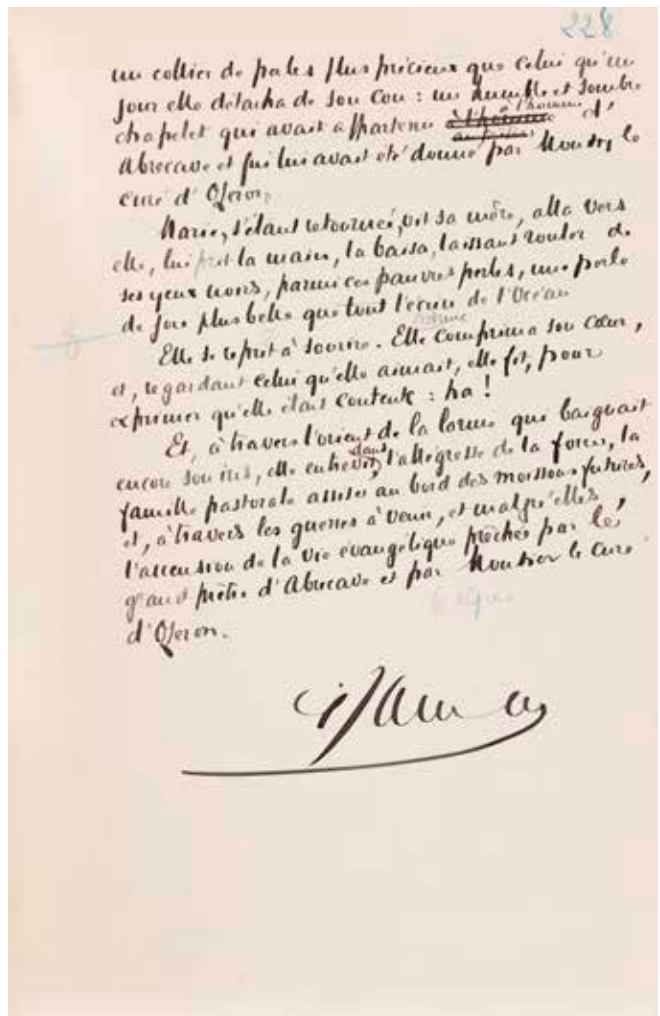 228
un collier de perles plus précieux que celui qu'un
jour elle détacha de son cou : un humble et sombre
chapelet qui avait appartenu à l'homme d'
Abrecave et qui lui avait été donné par Monsieur le
curé d'Oseron.
Marie, s'étant retournée, vit sa mère, alla vers
elle, lui prit la main, la baisa, laissant rouler de
ses yeux noirs, parmi ces pauvres perles, une perle
de joie plus belle que tout l'écrin de l'Océan
Elle se reprit à sourire. Elle comprima son cœur,
et, regardant celui qu'elle aimait, elle fit, pour
exprimer qu'elle était contente : ha !
Et, à travers l'orient de la larme qui baignait
encore son iris, elle entrevit, dans l'allégresse de la force, la
famille pastorale assise au bord des moissons futures,
et, à travers les guerres à venir, et malgré elles,
l'ascension de la vie évangélique prêchée par le
grand prêtre d'Abrecave et par Monsieur le curé
d'Oseron.